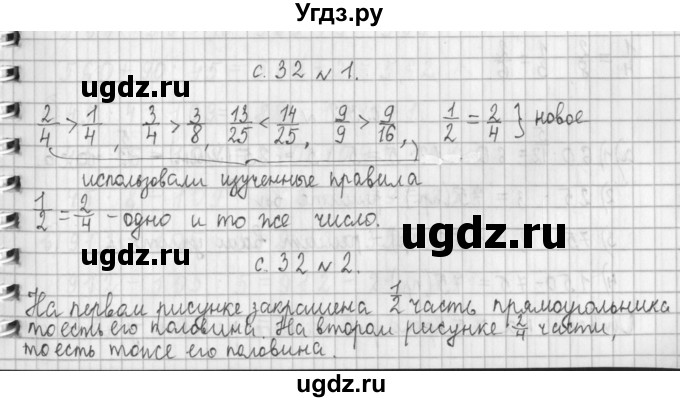 Угдз.ру
с. 32 № 1.
ugdz.ru ugdz.ru
2/4 > 1/4, 3/4 > 3/8, 13/25 < 14/25, 9/9 > 9/16, 1/2 = 2/4 } новое
использовали изученные правила
1/2 = 2/4 - одно и то же число.
ugdz.ru ugdz.ru
с. 32 № 2.
На первом рисунке закрашена 1/2 часть прямоугольника
то есть его половина. На втором рисунке 2/4 части,
то есть тоже его половина.
ugdz.ru
ugdz.ru